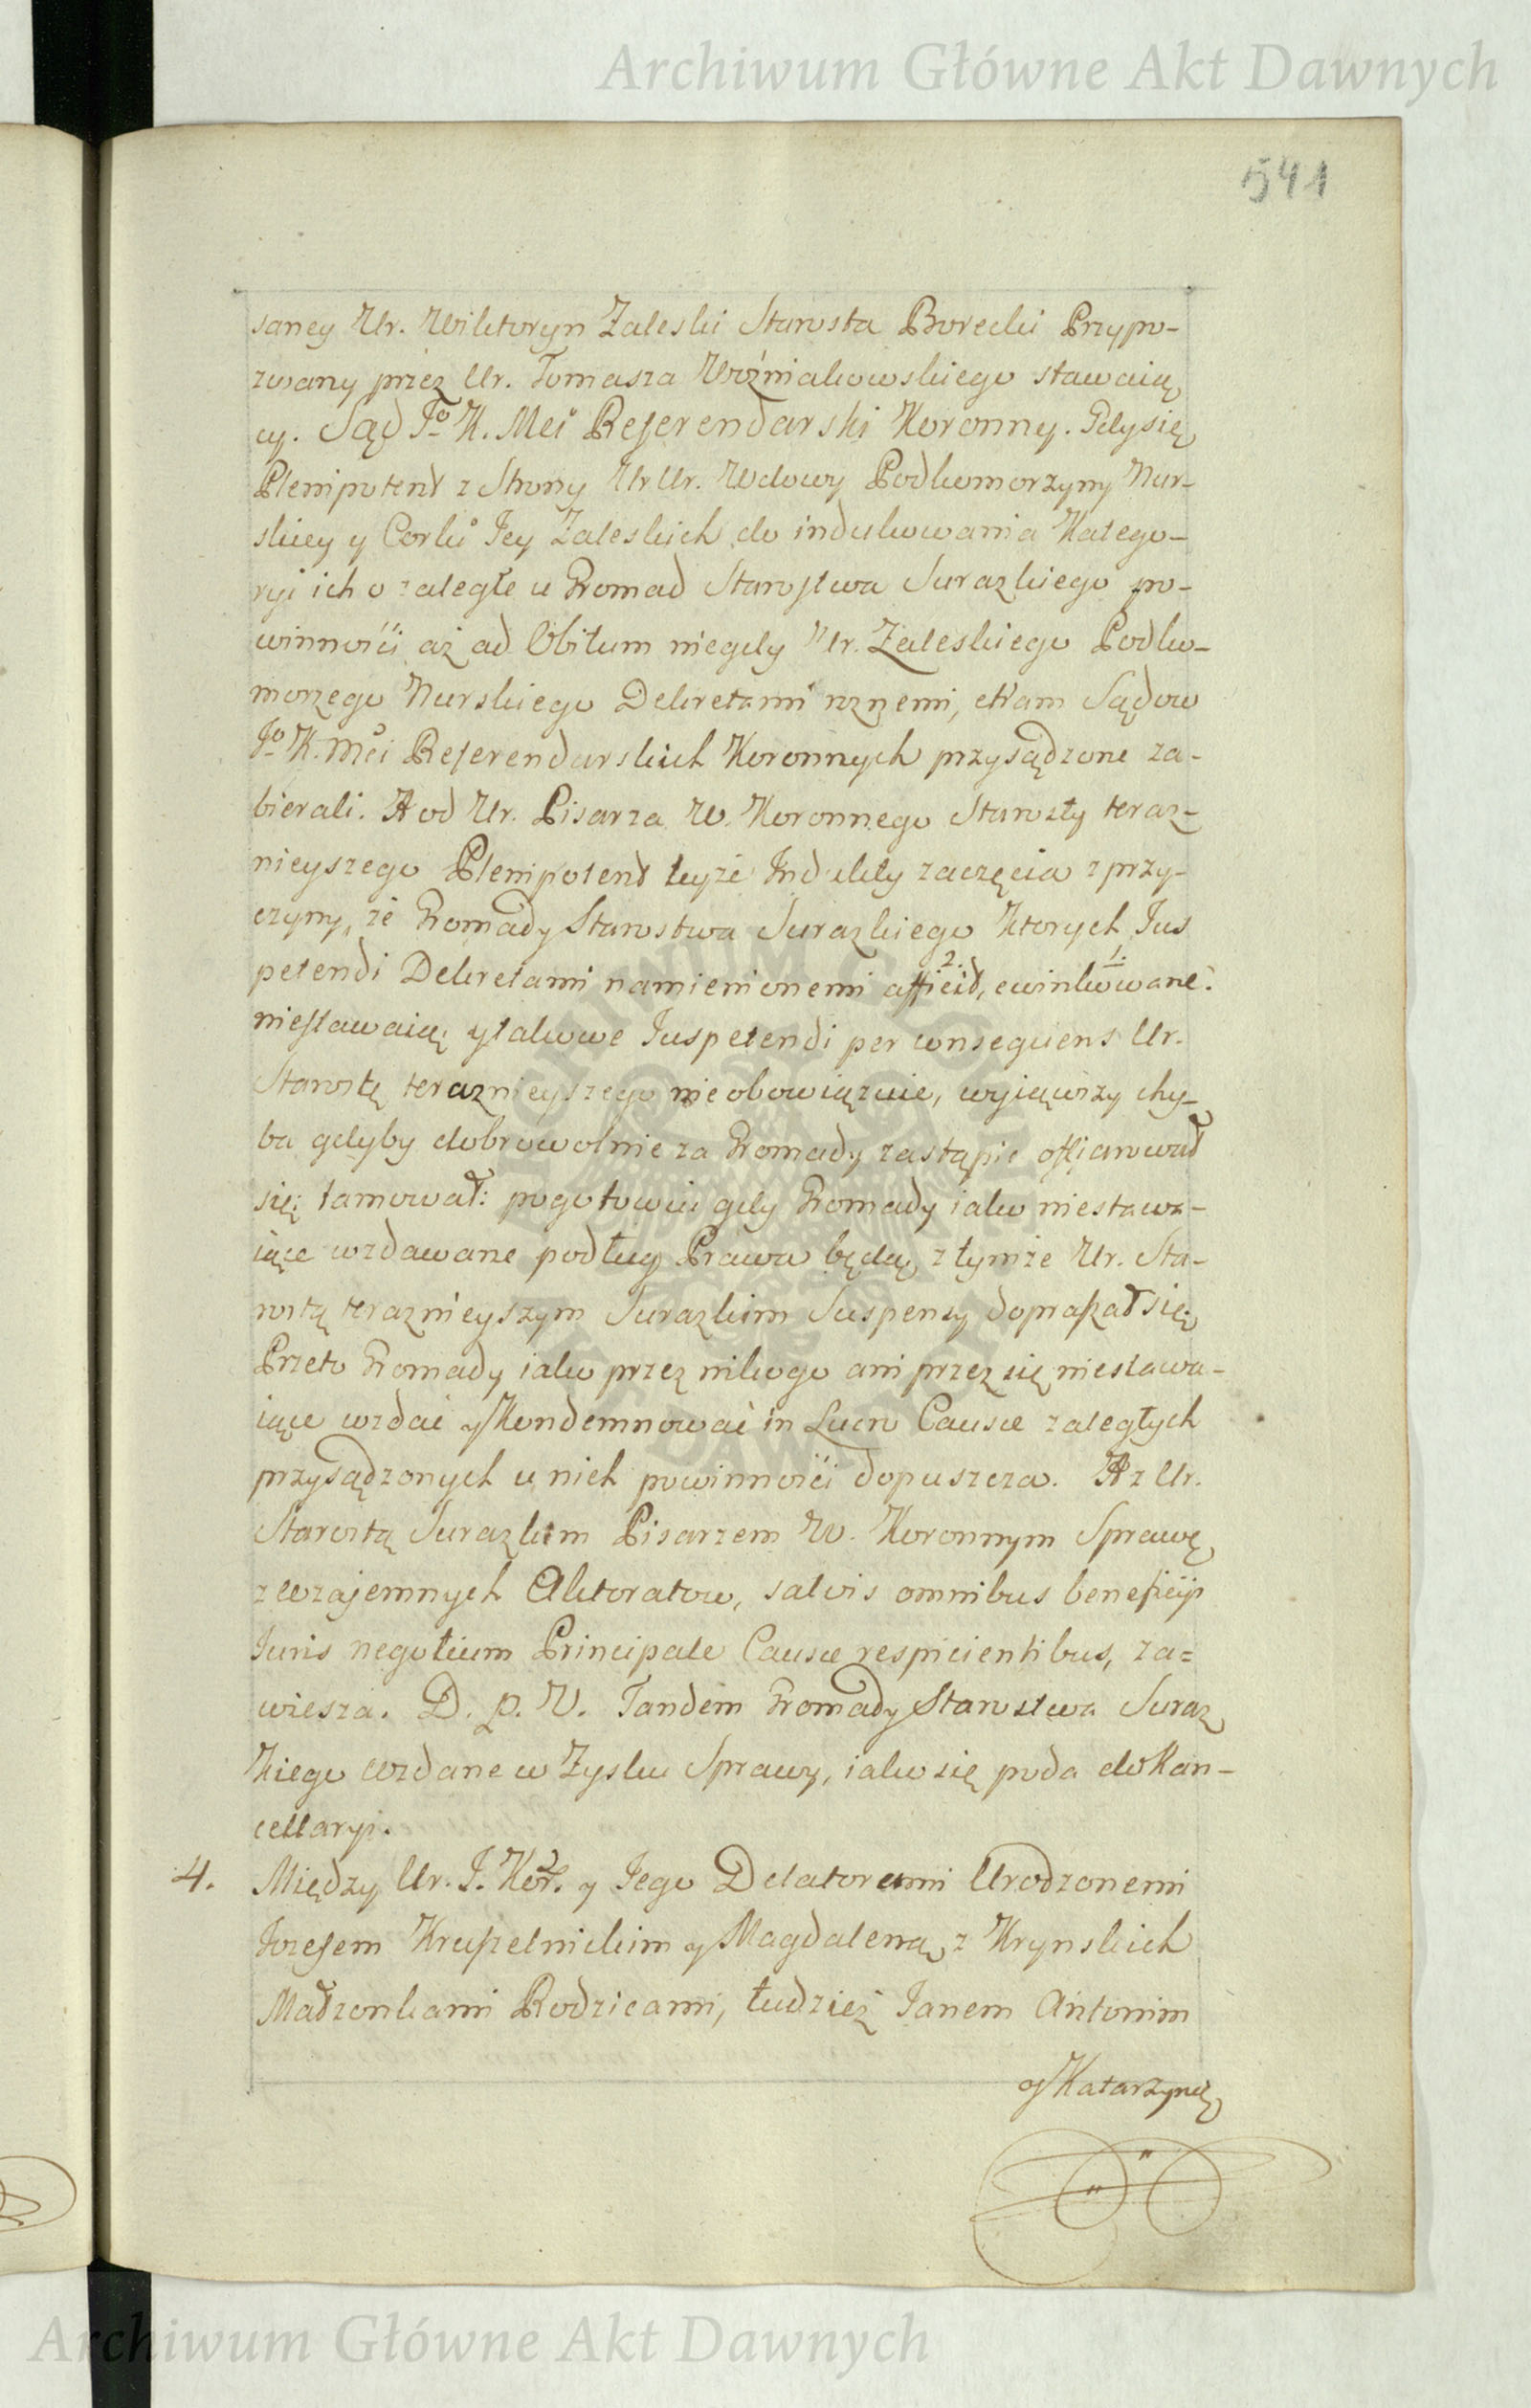 Archiwum Główne Akt Dawnych
541
saney Ur. Wiktoryn Zaleski Starosta Borecki Przypo-
zwany przez Ur. Tomasza Woźniakowskiego stawaią
cy. Sąd Jo K. Mci Referendarski Koronny. Gdy się
Plenipotent z Strony Ur Ur. Wdowy Podkomorzyny Nur-
skiey y Corki Jey Zaleskich do indukowania Katego-
ryi ich o zaległe u Gromad Starostwa Surazkiego po-
winności aż ad Obitum niegdy Ur. Zaleskiego Podko-
morzego Nurskiego Dekretami rznemi, etiam Sądow
Jo K. Mci Referendarskich Koronnych przysądzone za-
bierali. A od Ur. Pisarza W. Koronnego Starosty teraz-
nieyszego Plenipotent teyże Indukty zaczęcia z przy-
czyny, że Gromady Starostwa Surazkiego Ktorych Jus
petendi Dekretami namienionemi afficit, ewinkowane
2. 1.
niestawaią, y takowe Jus petendi per consequens Ur.
Starostę teraznieyszego nie obowiązuie, wyiąwszy chy-
ba gdyby dobrowolnie za Gromady zastąpic offiarował
się; tamował: pogotowiu gdy Gromady iako niestawa-
iące wzdawane podług Prawa będą, z tymże Ur. Sta-
rostą teraznieyszym Surazkim Suspensy dopraszał się
Przeto Gromady iako przez nikogo ani przez się niestawa-
iące wzdać y Kondemnować in Lucro Causæ zaległych
przysądzonych u nich powinności dopuszcza. A z Ur.
Starostą Surazkim Pisarzem W. Koronnym Sprawę
z wzajemnych Aktoratow, salvis omnibus beneficijs
Juris negotium Principale Causæ respicientibus, za=
wiesza. D. p. V. Tandem Gromady Starostwa Suraz
Kiego wzdane w Zysku Sprawy, iako się poda do Kan-
cellaryi.
4. Między Ur. J. Kor. y Jego Delatorami Urodzonemi
Jozefem Kruszelnickim y Magdaleną z Krynskich
Małzonkami Rodzicami, tudzież Janem Antonim
y Katarzyną
Archiwum Główne Akt Dawnych